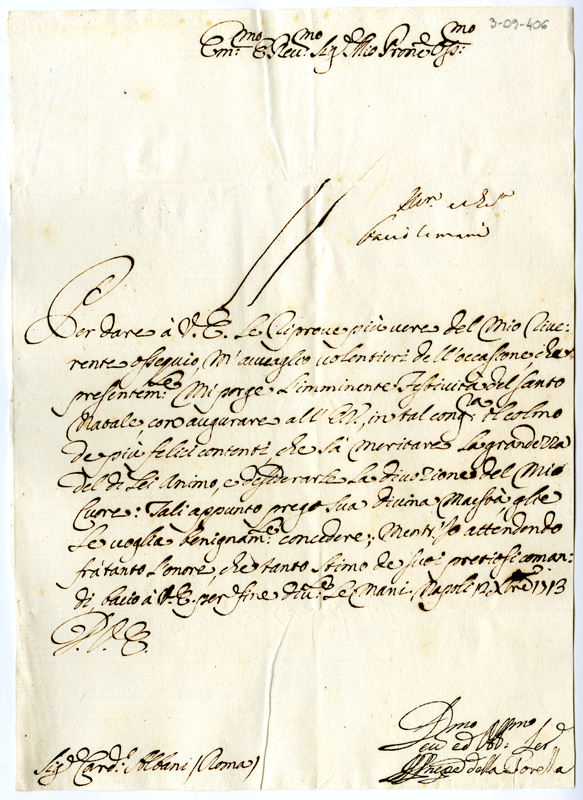 3-09-406
Em.mo e Rev.mo Sig.r Mio Pron.e Oss.mo
bacio le mani
Per dare à V. E. Le Riprove più vere del Mio River:
rente ossequio, M'avvaglio volentieri dell'occasione, che
presentem.te Mi porge L'imminente Festività del santo
Natale con augurare all'E.V., in tal cong.ra il colmo
de più felici contenti, che sà meritare La grandezza
del di Lei Animo, e desiderarle La divozione del Mio
Cuore: Tali appunto prego Sua Divina Maestà gliele
Le voglia benignam.te concedere; Mentr'Io attendendo
frà tanto L'onore, che tanto stimo de suoi pretiosi coman:
di bacio à V. E. per fine div.te Le Mani. Napoli 12 Xbre 1713
D. V. E.
Sig.r Card.l Albani (Roma)
D.mo
ed Obb.mo Ser.e
della Torella